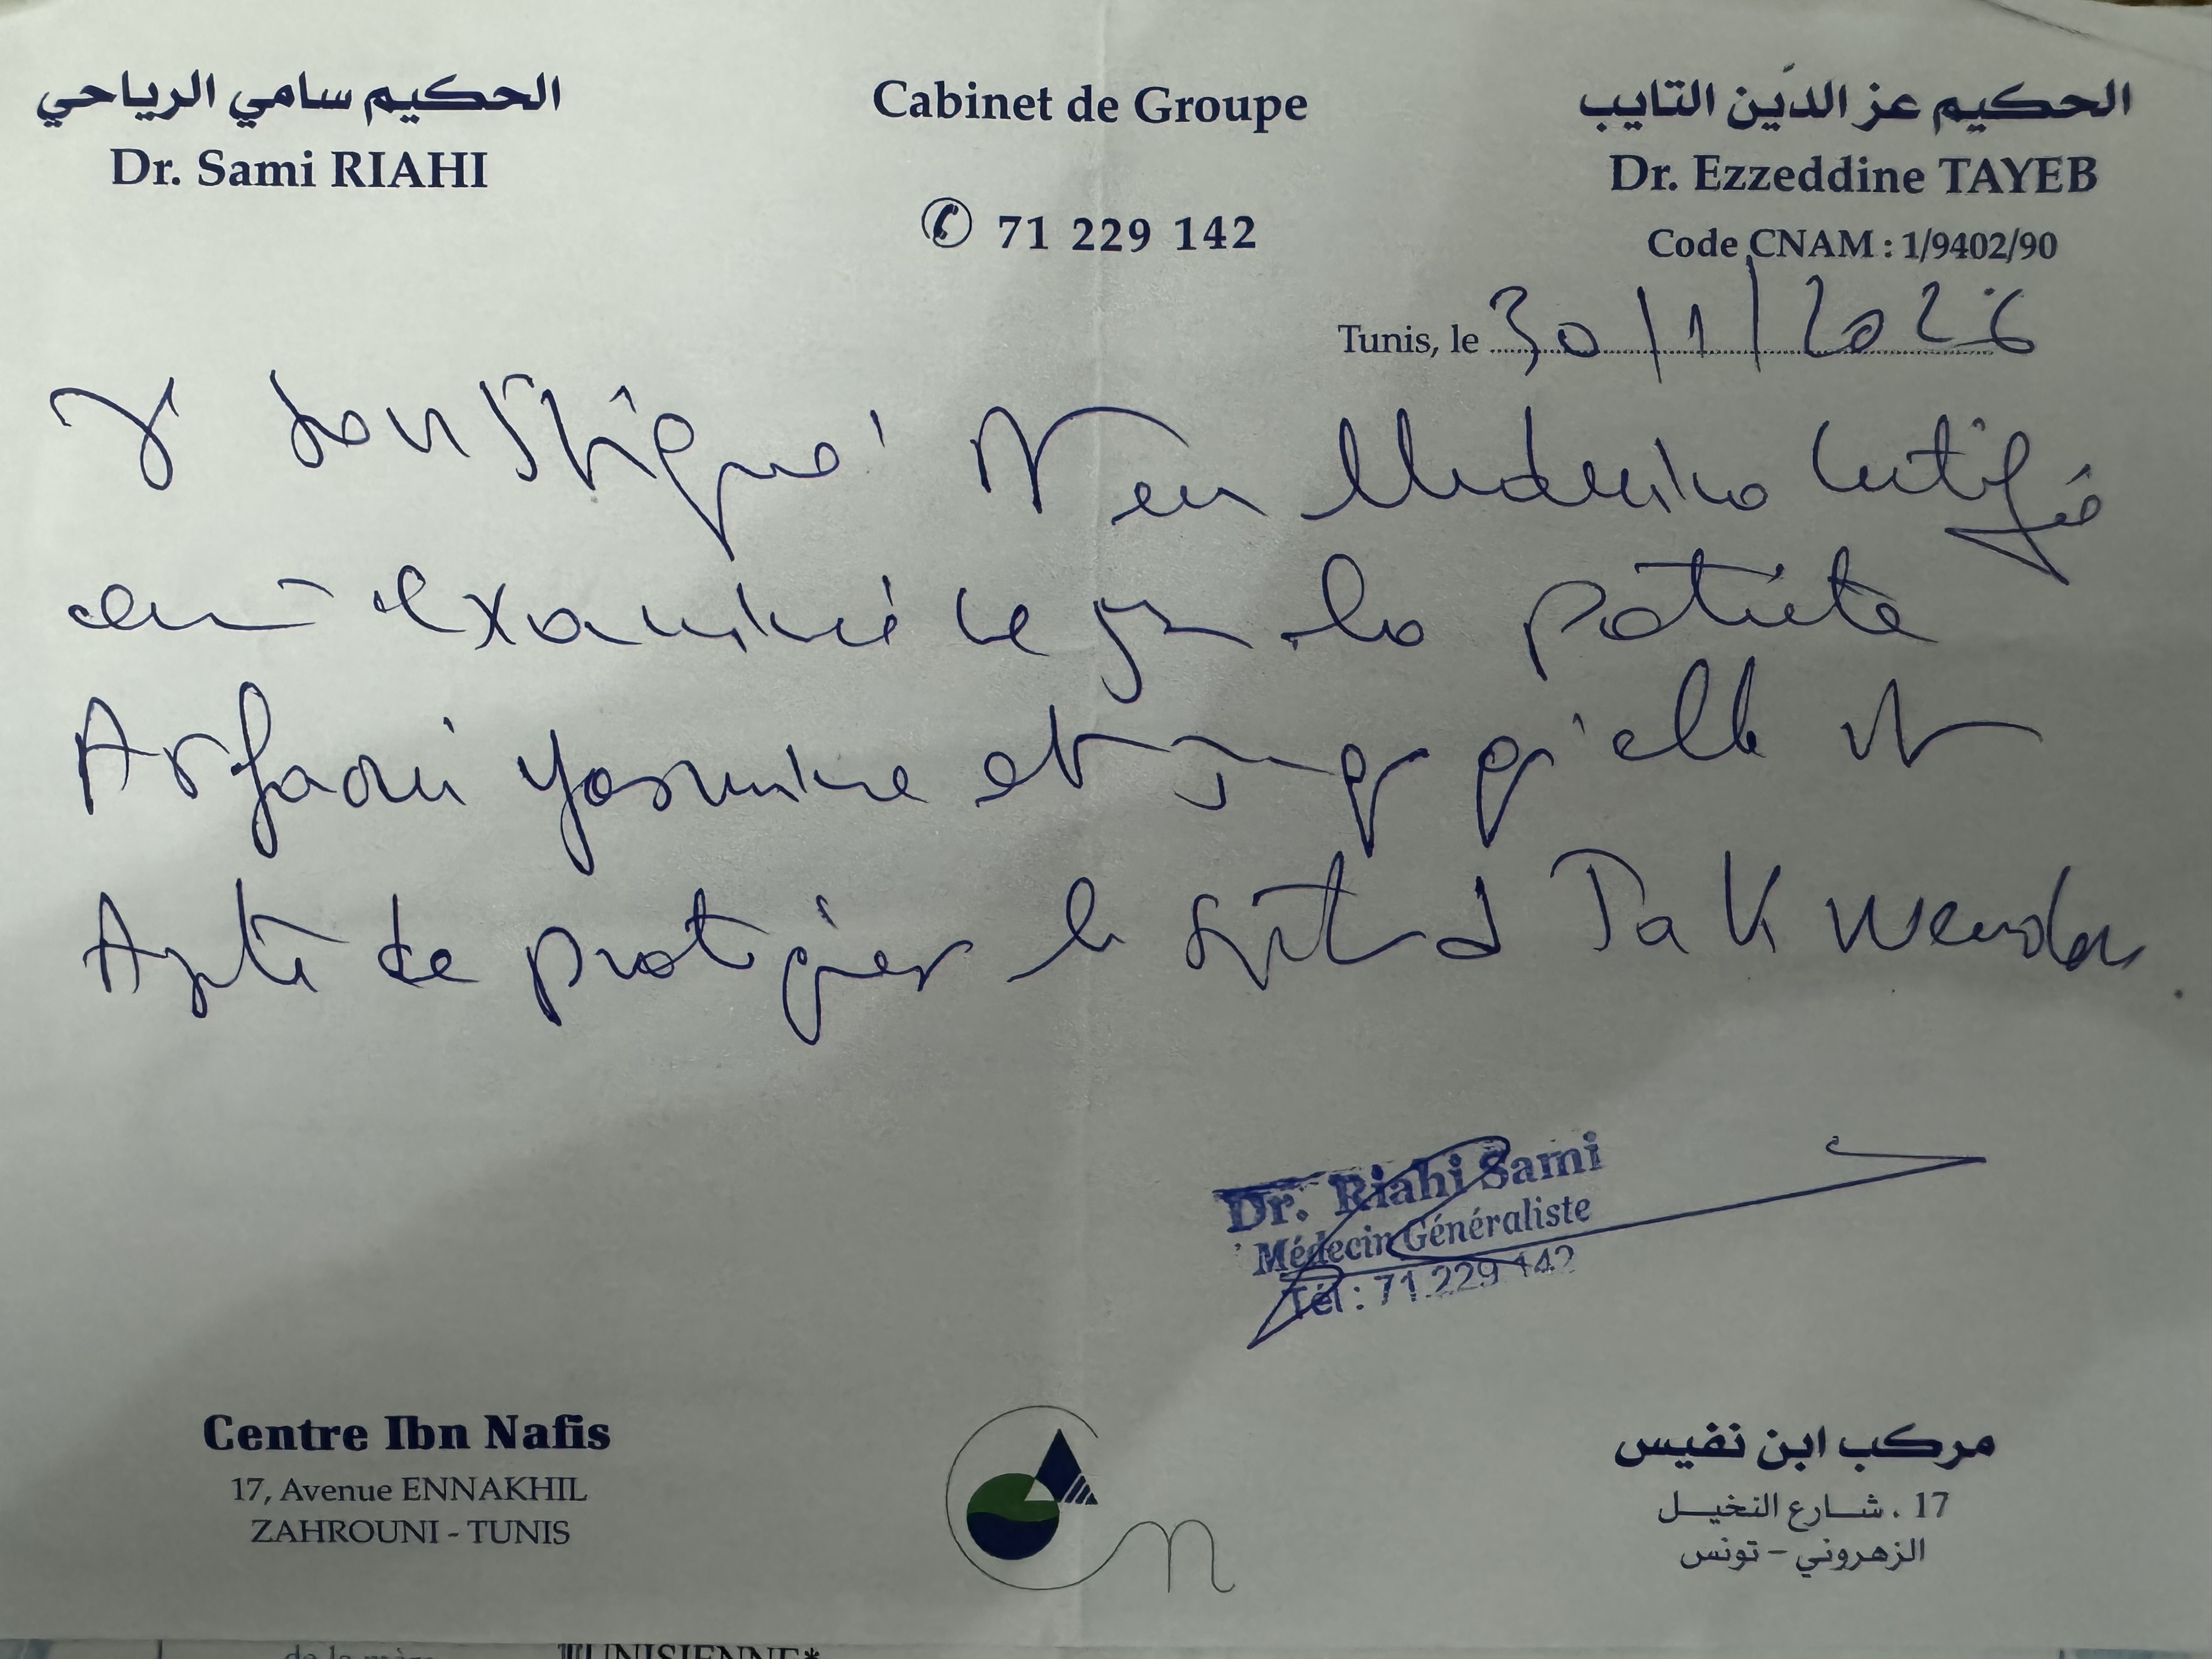 الحكيم سامي الرياحي
Dr. Sami RIAHI
Cabinet de Groupe
✆ 71 229 142
الحكيم عز الدين التايب
Dr. Ezzeddine TAYEB
Code CNAM : 1/9402/90
Tunis, le 30/1/2026
Je soussigné Dr en Médecine certifie
avoir examiné ce jour la patiente
Arfaoui Yasmine et que qu'elle est
Apte de pratiquer le sport Taekwendo
Dr. Riahi Sami
Médecin Généraliste
Tél : 71.229 142
Centre Ibn Nafis
17, Avenue ENNAKHIL
ZAHROUNI - TUNIS
مركب ابن نفيس
17 ، شارع النخيل
الزهروني - تونس
de la mère
TUNISIENNE*